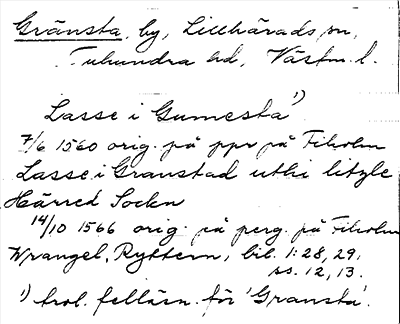 Gränsta, by, Lillhärads sn,
Tuhundra hd, Västm. l.
Lasse i Gumesta 1)
7/6 1560 orig. på ppr på Fiholm
Lasse i Granstad uthi litzle
Härred Sockn
14/10 1566 orig. på perg. på Fiholm
Wrangel, Ryttern, bil. 1:28, 29.
ss. 12, 13.
1) trol. felläsn. för 'Gransta'.